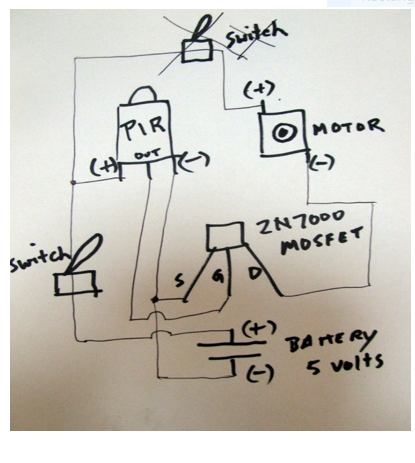 switch
(+)
PIR
MOTOR
OUT
(+)
(-)
(-)
2N7000
MOSFET
switch
S
G
D
(+)
BATTERY
(-)
5 volts